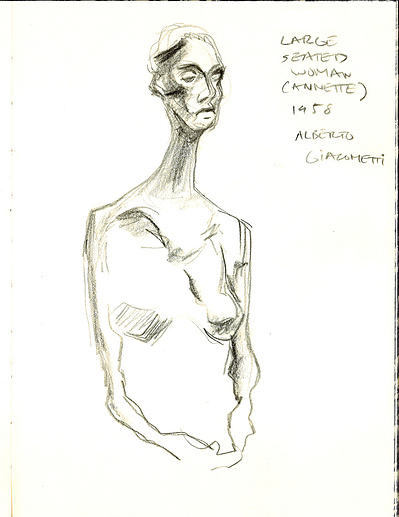 LARGE
SEATED
WOMAN
(ANNETTE)
1958
ALBERTO
GIACOMETTI